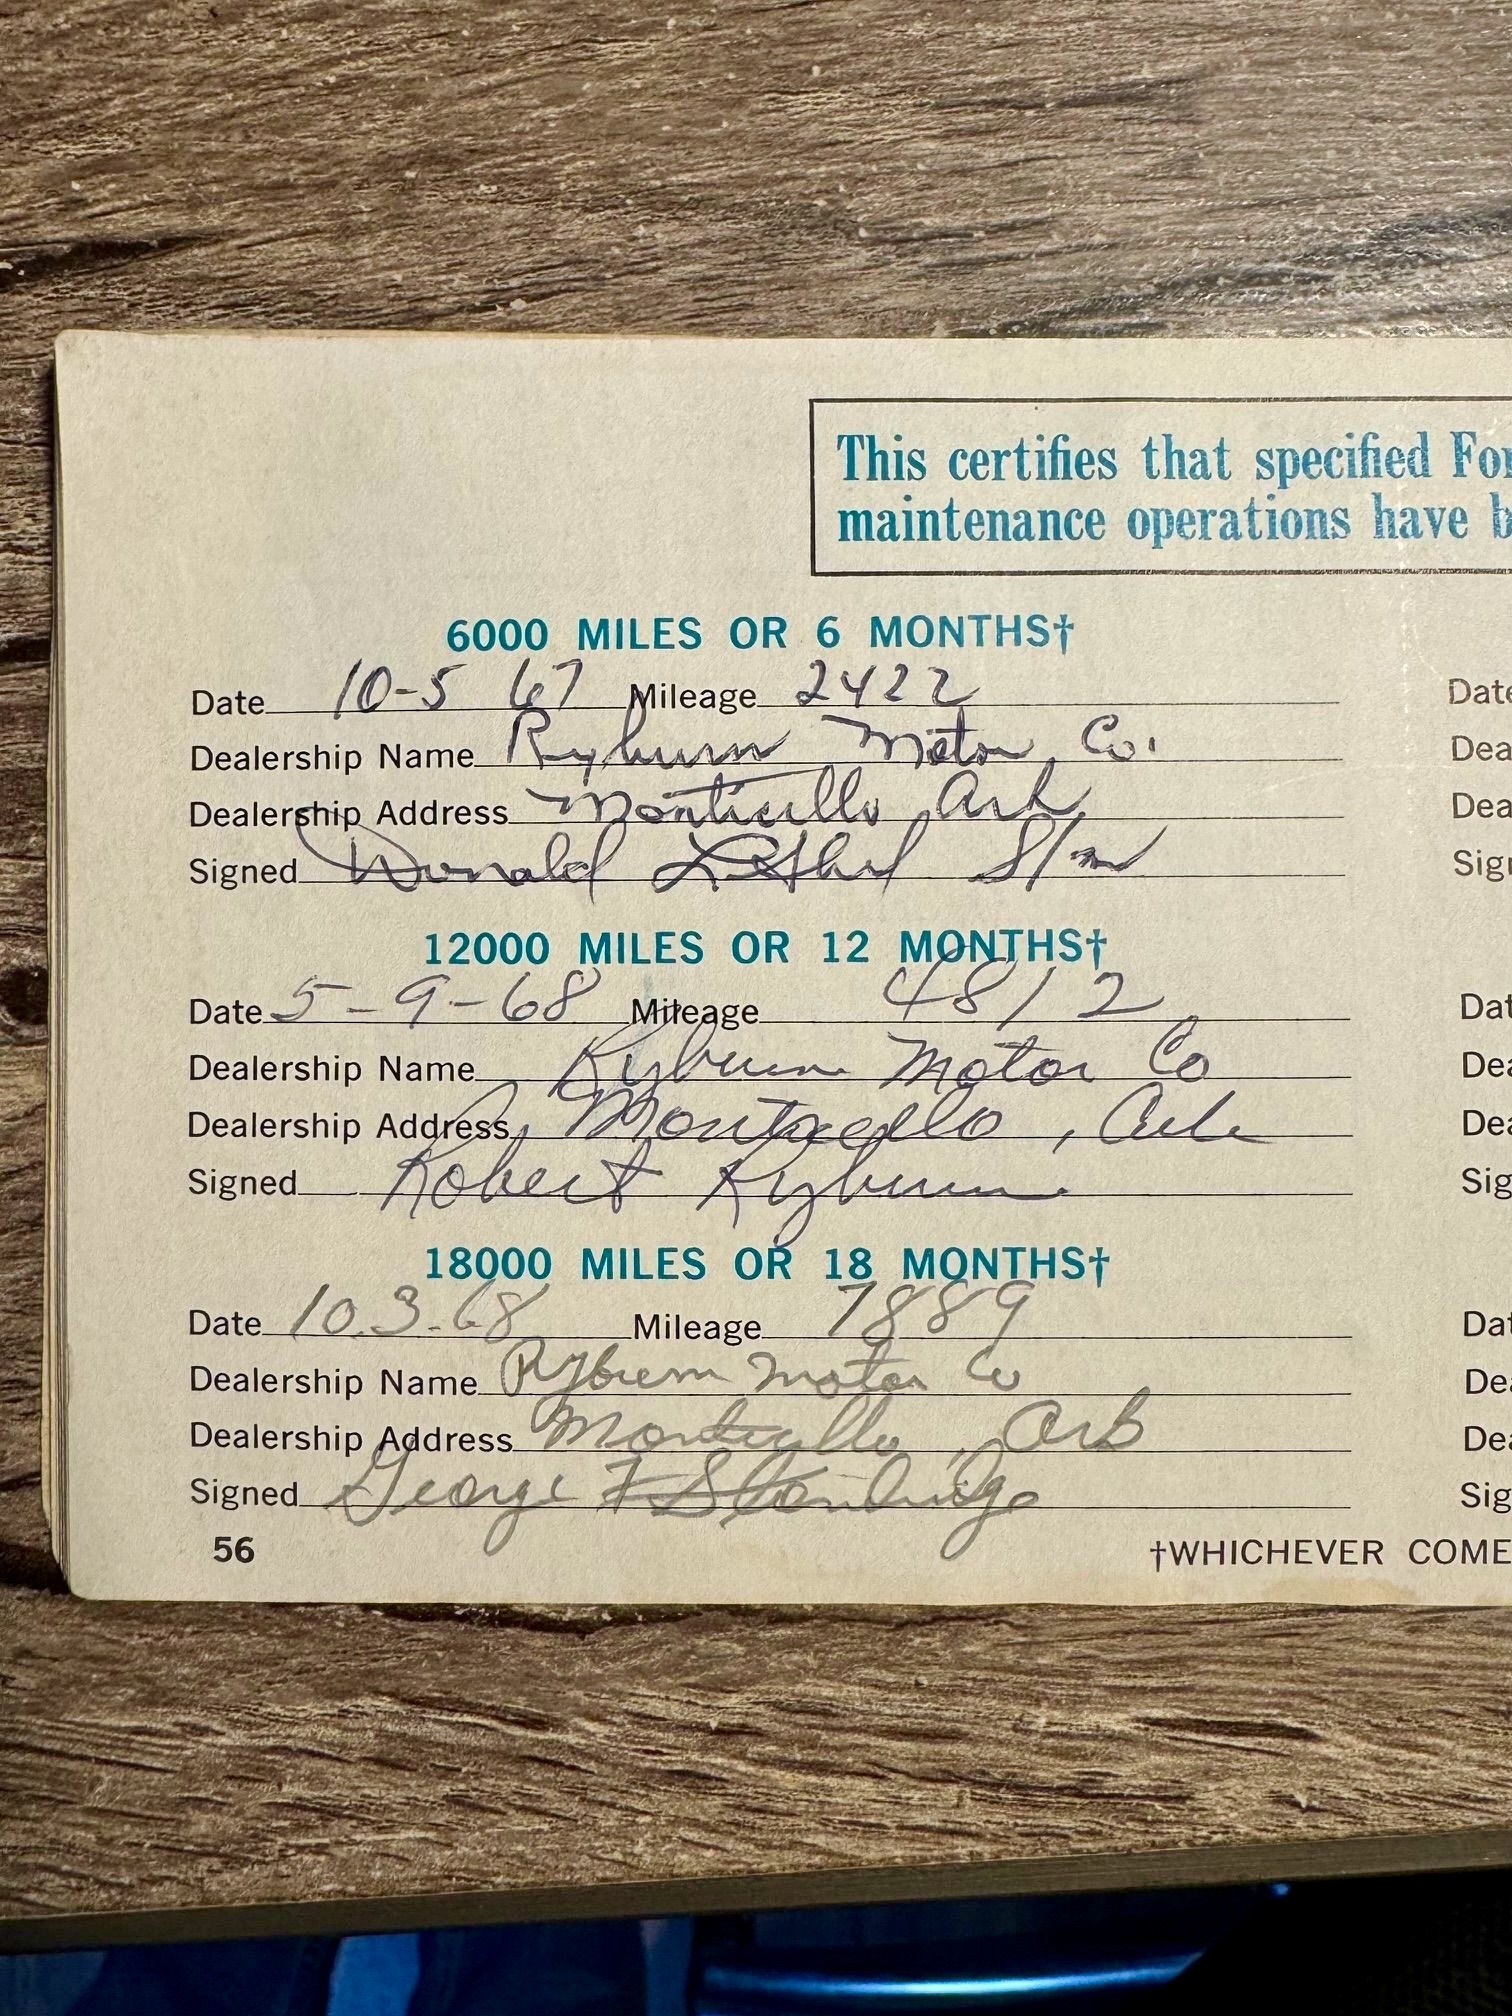 This certifies that specified For
maintenance operations have b
6000 MILES OR 6 MONTHS†
Date 10-5 67 Mileage 2422
Date
Dealership Name Ryburn Motor Co.
Dea
Dealership Address Monticello, Ark
Dea
Signed Donald
Sig
12000 MILES OR 12 MONTHS†
Date 5-9-68 Mileage 4812
Dat
Dealership Name Ryburn Motor Co
Dea
Dealership Address Monticello, Ark
Dea
Signed Robert Ryburn
Sig
18000 MILES OR 18 MONTHS†
Date 10.3-68 Mileage 7889
Dat
Dealership Name Ryburn Motor Co
Dea
Dealership Address Monticello, Ark
Dea
Signed George F Standridge
Sig
56
†WHICHEVER COME